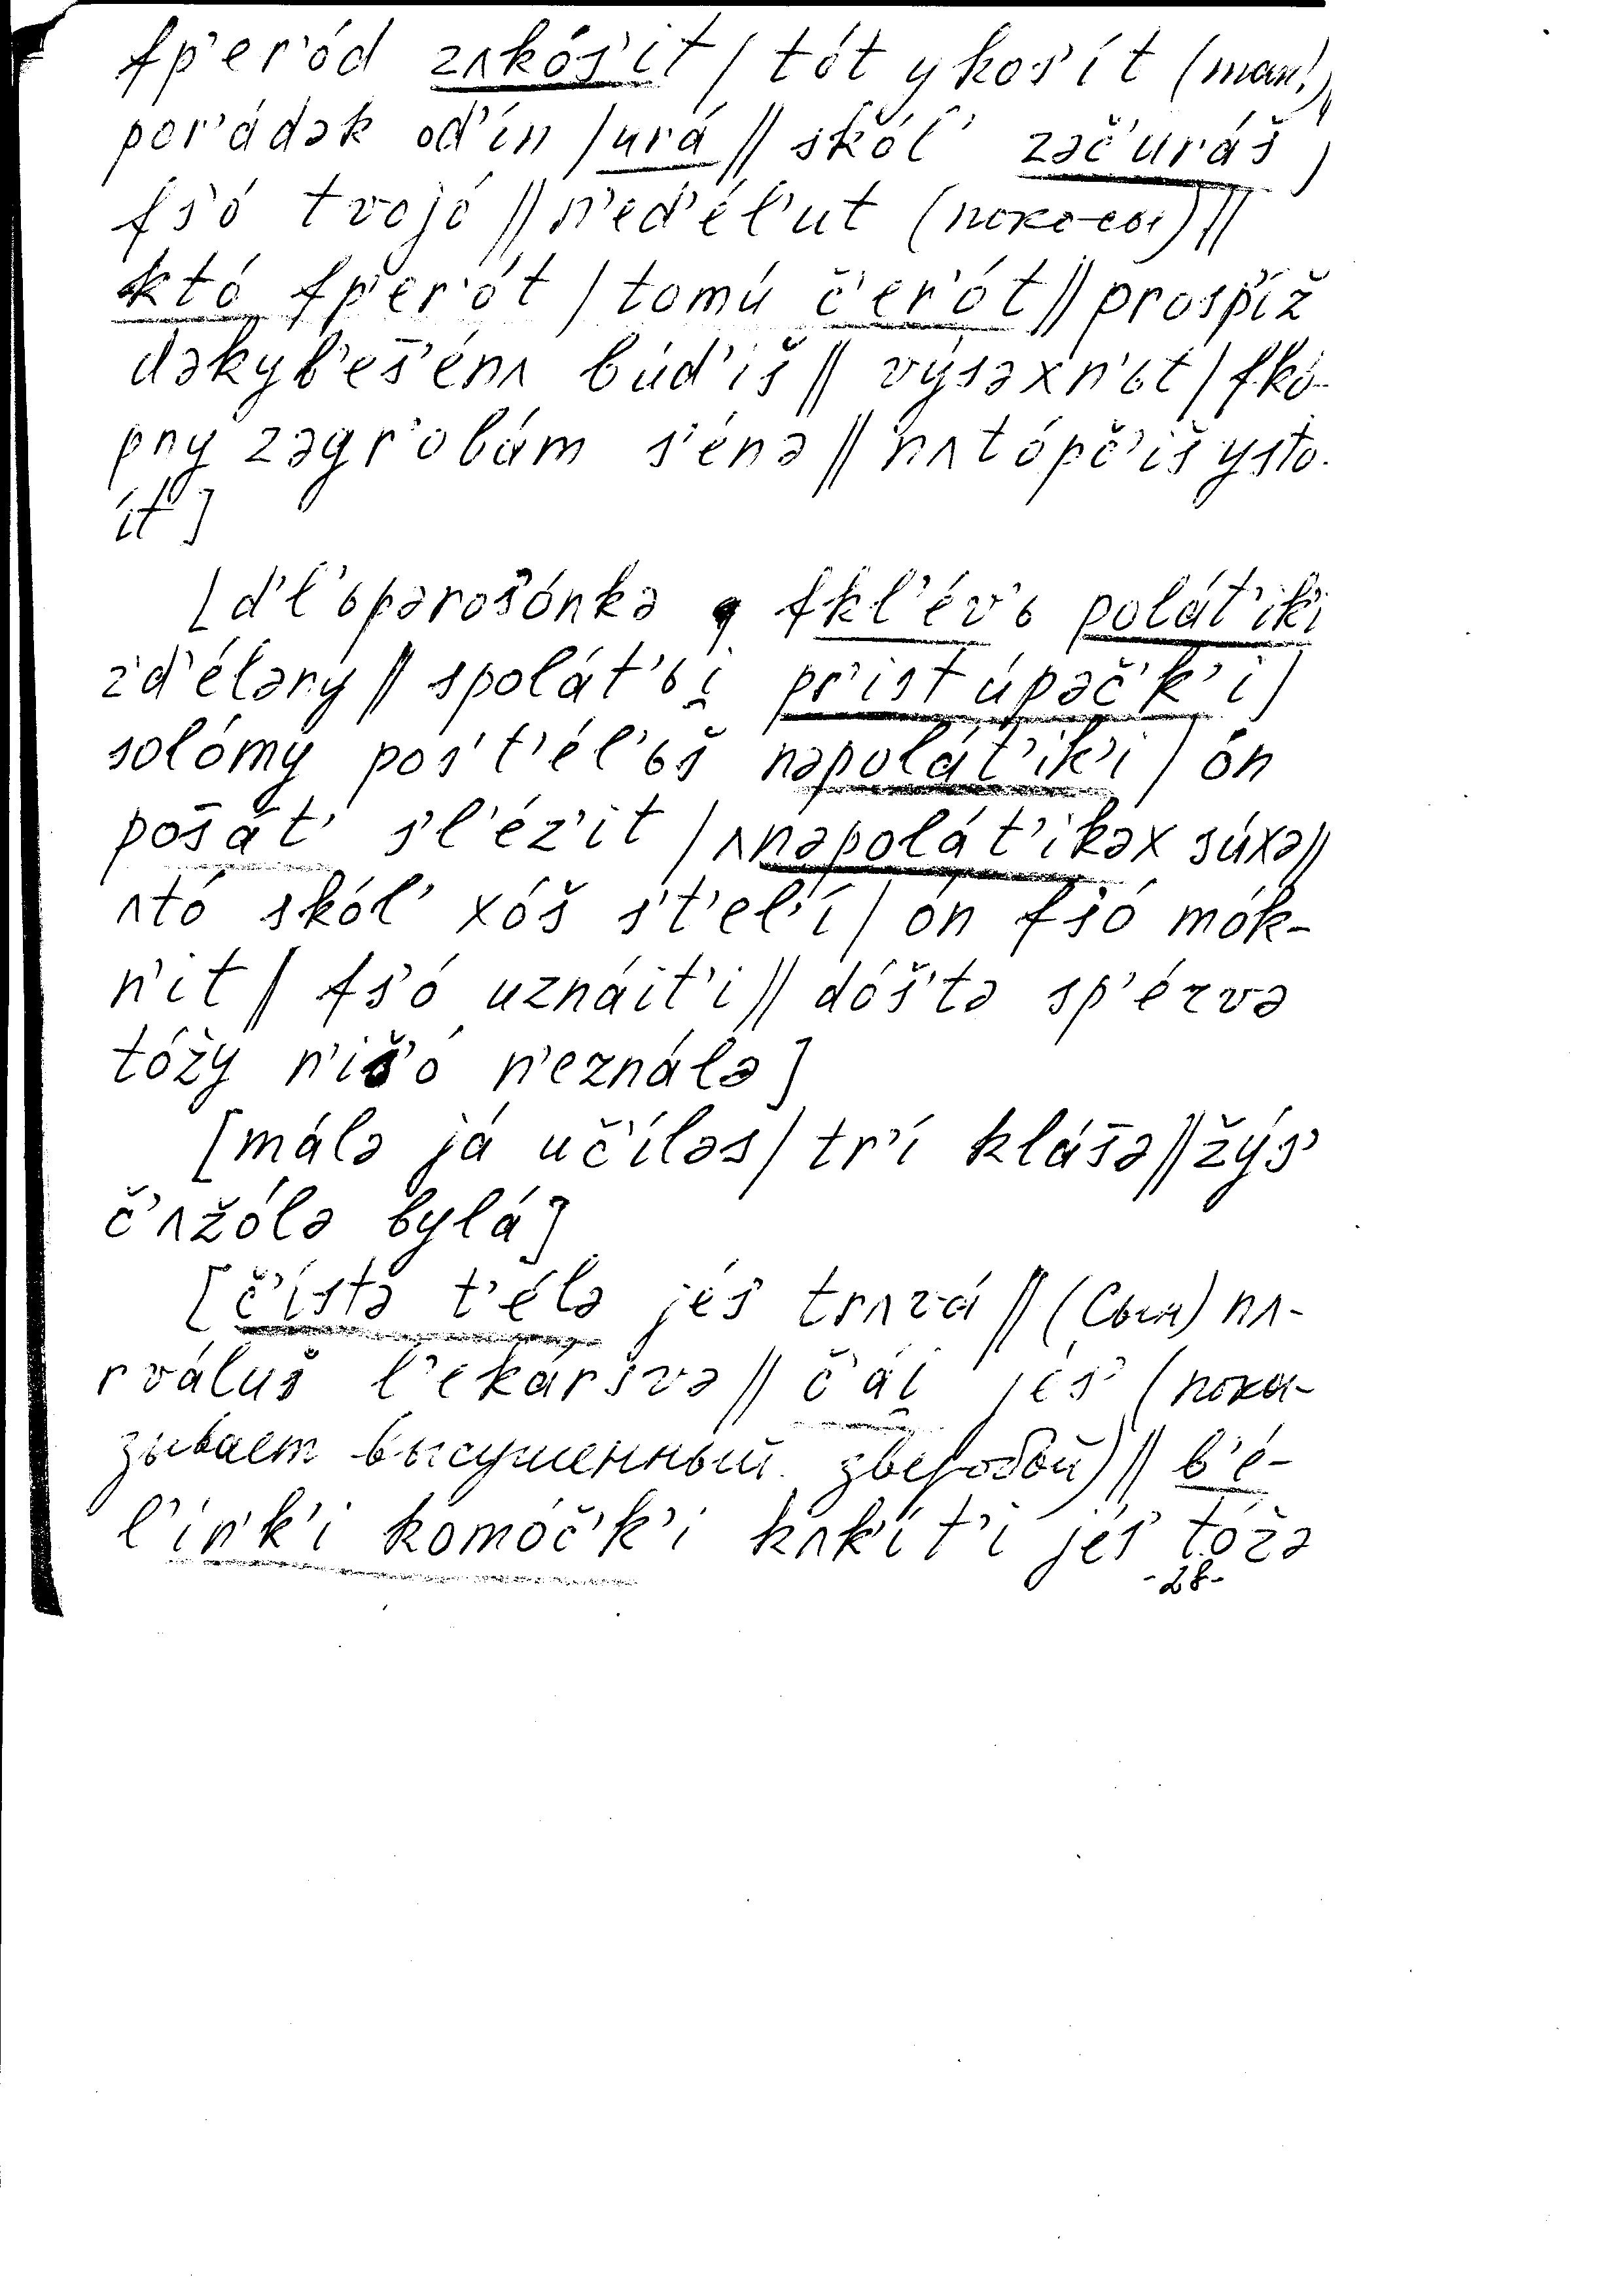 fp'er'ód zʌkós'it / tót y kos'ít (так!),
por'ádək od'ín / urá // skól' zəč'uráš,
fs'ó tvojó // n'ed'él'ut (покосы) //
któ fp'er'ót / tomú č'er'ót // prosp'íž
dəkyb'eš'énʌ búd'iš // výsəxn'ьt / fkó-
pny zəgr'obám s'énə // nʌtópč'iš ysto-
ít]
[d'l'ьpərošónkə fkl'év'ь polát'ik'i
zd'éləny // spolát'ьi̯ pr'istúpəč'k'i /
solómy pos't'él'ьš nəpolát'ik'i / ón
pošát' s'l'éz'it / ʌnəpolát'ikəx súxə //
ʌtó skól' xóš s't'el'í / ón fs'ó mók-
n'it / fs'ó uznáit'i // dóš'tə sp'érvə
tóžy n'išó n'eználə]
[málə já uč'íləs / tr'í klášə // žýs'
č'ʌžólə bylá]
[č'ístə t'élə jés' trʌvá // (Сын) nʌ-
rváluš l'ekáršvə // č'ái̯ jés' (пока-
зывает высушенный зверобой) // b'é-
l'in'k'i komóč'k'i kʌk'ít'i jés' tóžə
-28-